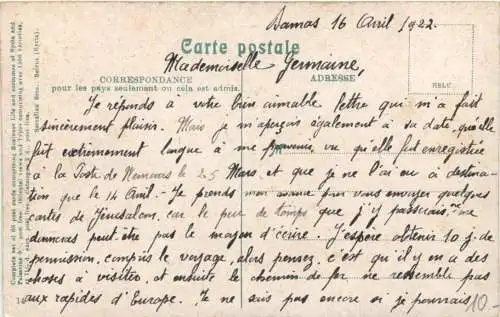 Damas 16 Avril 1922.
Carte postale
Mademoiselle Germaine,
CORRESPONDANCE ADRESSE
pour les pays seulement où cela est admis.
RELU
Je reponds à votre bien aimable lettre qui m'a fait
sincèrement plaisir. Mais je m'aperçois également à sa date, qu'elle
fut extrêmement longue à me parvenir, vu qu'elle fut enregistrée
à la Poste de Nemours le 25 Mars, et que je ne l'ai eu à destina-
tion que le 14 Avril. - Je prends mon pour vous envoyer quelques
cartes de Jérusalem, car le peu de temps que j'y passerais, ne me
donnera peut être pas le moyen d'écrire. J'espère obtenir 10 j. de
permission, compris le voyage, alors pensez, c'est qu'il y en a des
choses à visiter, et ensuite le chemin de fer ne ressemble pas
aux rapides d'Europe. Je ne sais pas encore si je pourrais
10.-